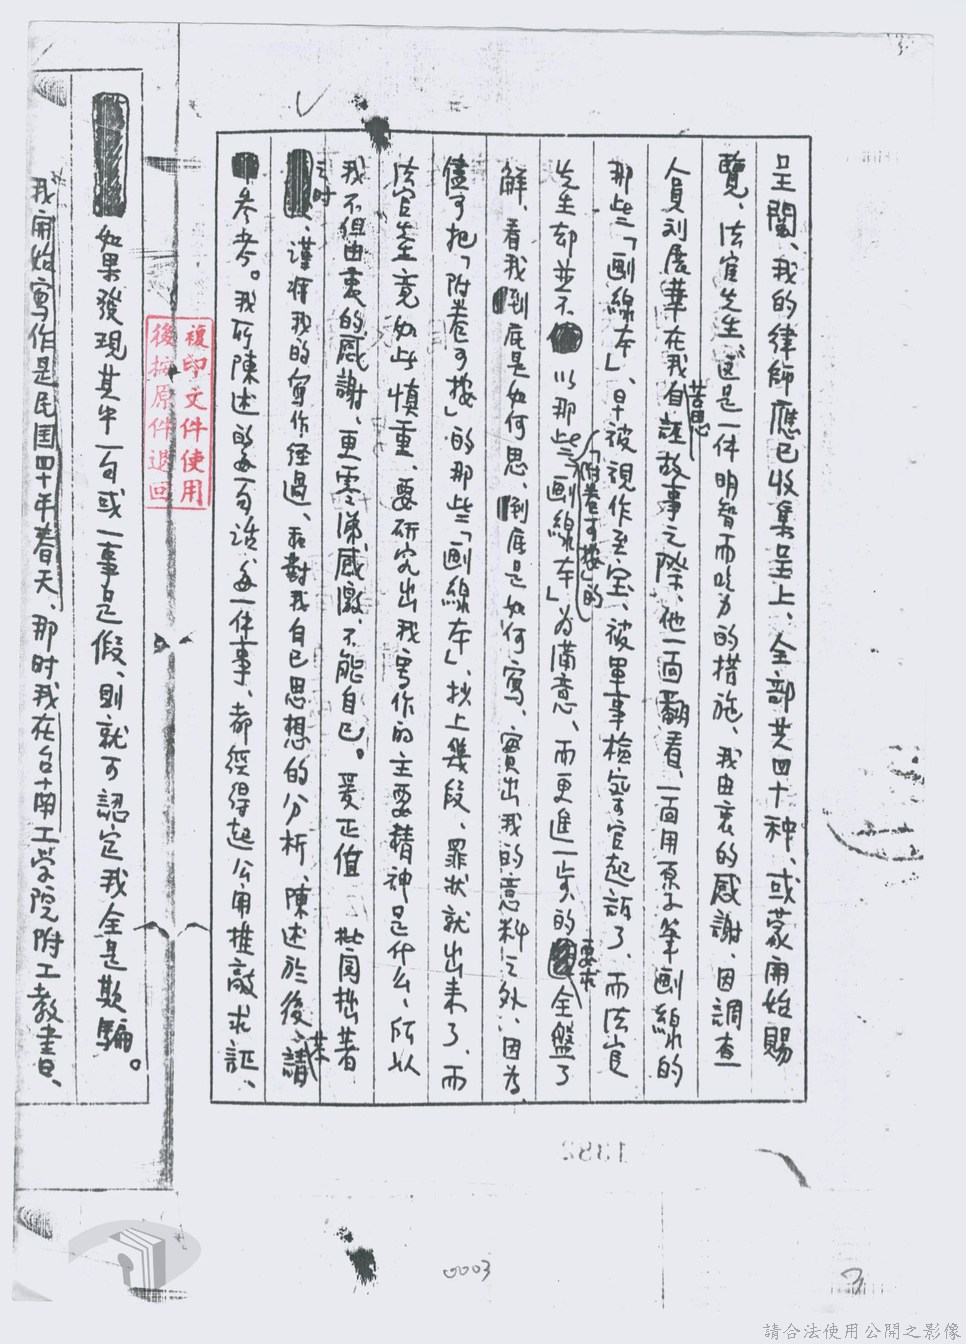 呈閱、我的律師應已收集呈上、全部共四十种、或蒙開始賜
覽、法官先生、這是一件明智而吃力的措施、我由衷的感謝、因調查
人員刘展華在我自誣故事之際、他一面翻看、一面用原子筆劃線的
苦思
那些「劃線本」、早被視作至宝、被軍事檢察官起訴了、而法官
先生却並不以那些「劃線本」為滿意、而更進一步的全盤了
「附卷可按」的
要求
解、看我到底是如何思、到底是如何寫、實出我的意料之外、因為、
儘可把「附卷可按」的那些「劃線本」、抄上幾段、罪狀就出来了、而
法官先生竟如此慎重、要研究出我寫作的主要精神是什么、所以
我不但由衷的感謝、更零涕感激、不能自已。爰正值 批閱拙著
之时
、谨将我的寫作经過、和對我自己思想的分析、陳述於後、請
恭
參考。我所陳述的每一句話、每一件事、都經得起公用推敲求証、
如果發現其中一句或一事是假、則就可認定我全是欺騙。
我開始寫作是民国四十年春天、那时我在台南工学院附工教書、
複印文件使用
後按原件退回
1382
0003
3
請合法使用公開之影像